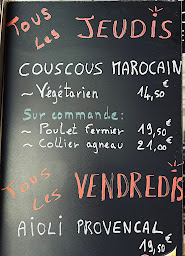 Tous Les JEUDIS
COUSCOUS MAROCAIN
~ Végétarien 14,50€
Sur commande:
~ Poulet fermier 19,50€
~ Collier agneau 21,00€
Tous Les VENDREDIS
AÏOLI PROVENCAL
19,50€